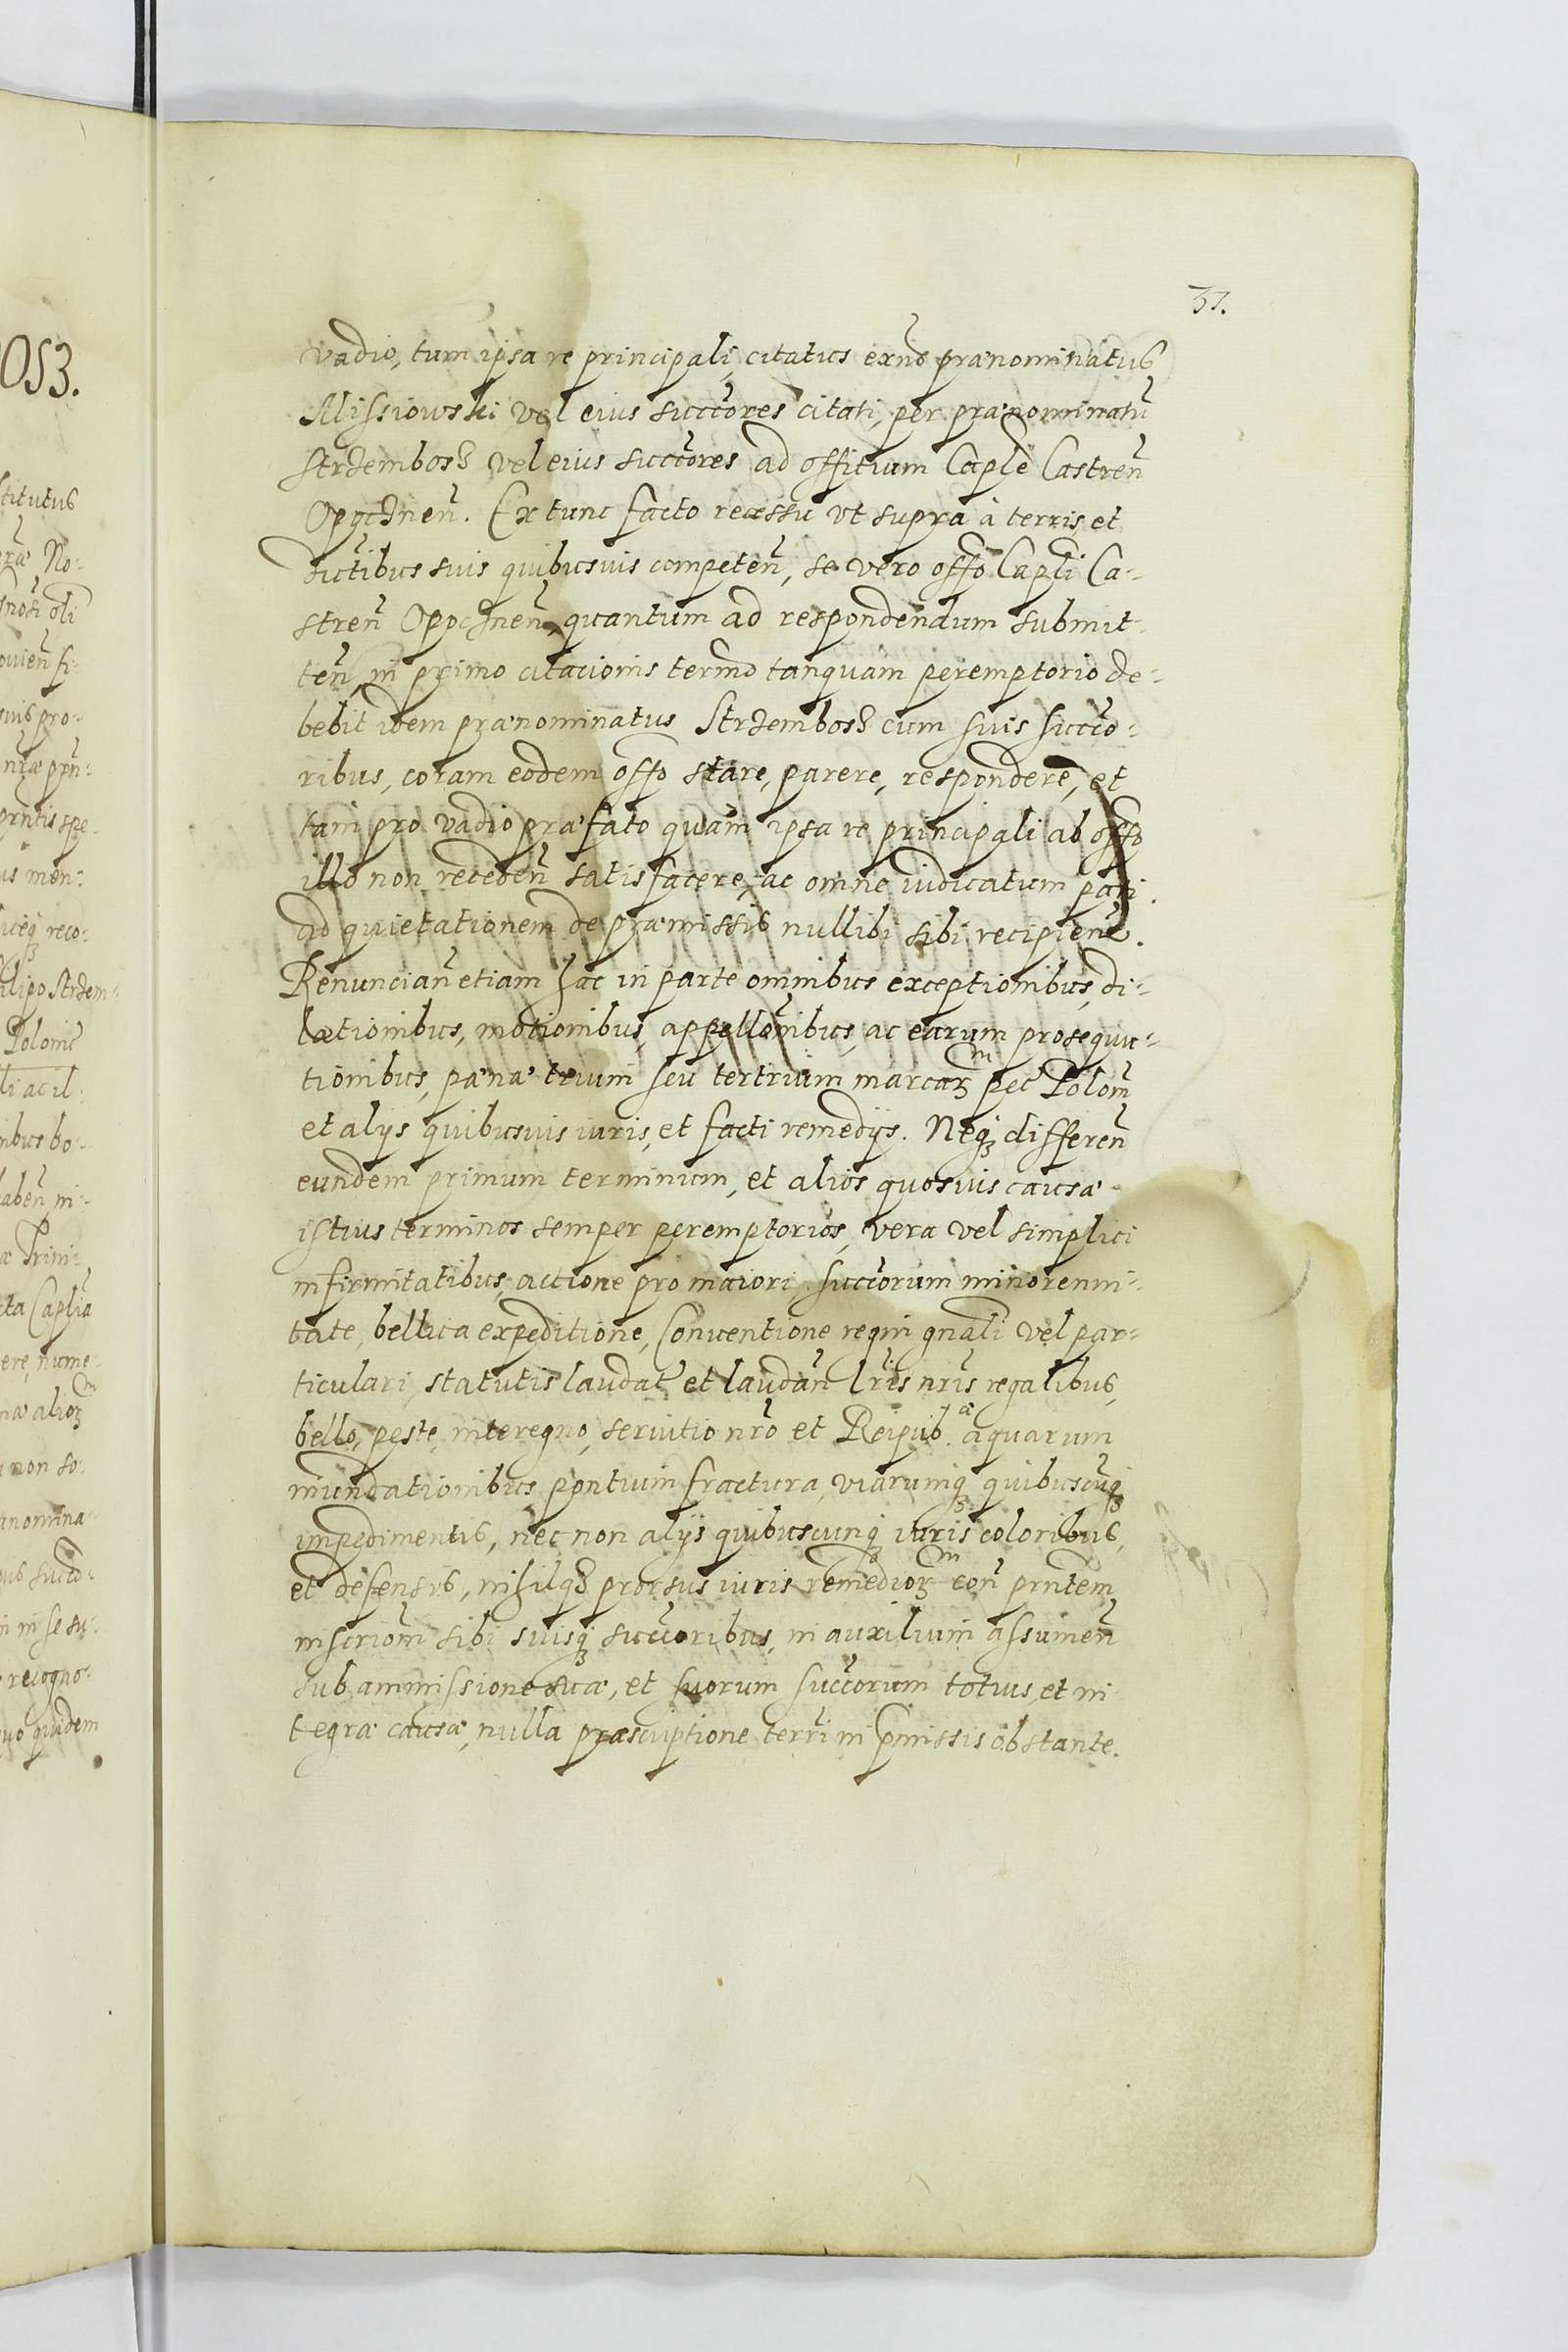 37.
vadio, tum ipsa re principali, citatus exñs prænominatus
Missiowski vel eius succōres citati, per prænominatū
Strzembosz vel eius succōres ad offitium Caplē Castreñ
Opoczneñ. Extunc facto recessu vt supra à terris et
dictībus suis quibusuis competeñ, se vero offo Capli Ca-
streñ Oppcznen, quantum ad respondendum submit-
teñ in primo citacionis termō tanquam peremptorio de-
bebit idem prænominatus Strzembosz cum suis succō-
ribus, coram eodem offo stare, parere, respondere, et
tam pro vadio præfato quam ipsa re principali ab offo
illo non recedeñ satisfacere, ac omne iudicatum pati.
ad quietationem de præmissis nullibi sibi recipieñ.
Renunciañ etiam hac in parte omnibus exceptionibus, di-
lationibus, motionibus, appellōnibus, ac earum prosequu-
tionibus, pænæ trium seu tertrium marcaꝝ pec Poloñ
et alijs quibusuis iuris, et facti remedijs. Neqȝ differeñ
eundem primum terminum, et alios quosuis causæ
istius terminos semper peremptorios, vera vel simplici
infirmitatibus, actione pro maiori, succōrum minorenni-
tate, bellica expeditione, Conuentione regni gnali vel par-
ticulari, statutis laudat et laudañ lr̄is nr̄is regalibus,
bello, peste, interegno, seruitio nr̄o et Reipub.æ aquarum
inundationibus pontium fractura, viarumqȝ quibuscūqȝ
impedimentis, nec non alijs quibuscunqȝ iuris coloribus,
et defensis, nihilqȝ prorsus iuris remedioꝝ coñ prntem
inscriom̄ sibi suisqȝ succōribus, in auxilium assumeñ
sub ammissione suæ, et suorum succōrum totius et in-
tegræ causæ, nulla præscriptione terr̄i in p̄missis obstante.